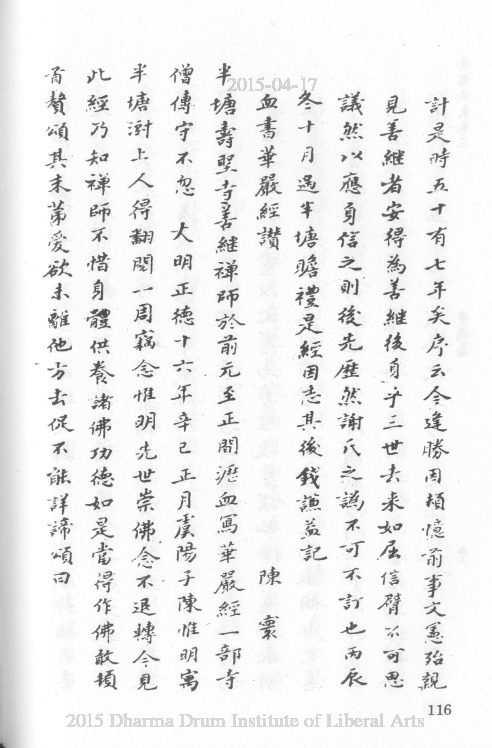 計是時五十有七年矣序云今逢勝因頓憶前事文憲殆親
見善繼者安得為善繼後身乎三世去來如屈信臂不可思
議然以應身信之則後先歷然謝氏之譌不可不訂也丙辰
冬十月過半塘瞻禮是經因志其後錢謙益記
血書華嚴經讚 陳寰
半塘壽聖寺善繼禪師於前元至正間瀝血寫華嚴經一部寺
僧傳守不忽 大明正德十六年辛巳正月虞陽子陳惟明寓
半塘澍上人得翻閱一周竊念惟明先世崇佛念不退轉今見
此經乃知禪師不惜身體供養諸佛功德如是當得作佛敢頓
首贅頌其末第愛欲未離他方去促不能詳諦頌曰
116
2015-04-17
2015 Dharma Drum Institute of Liberal Arts